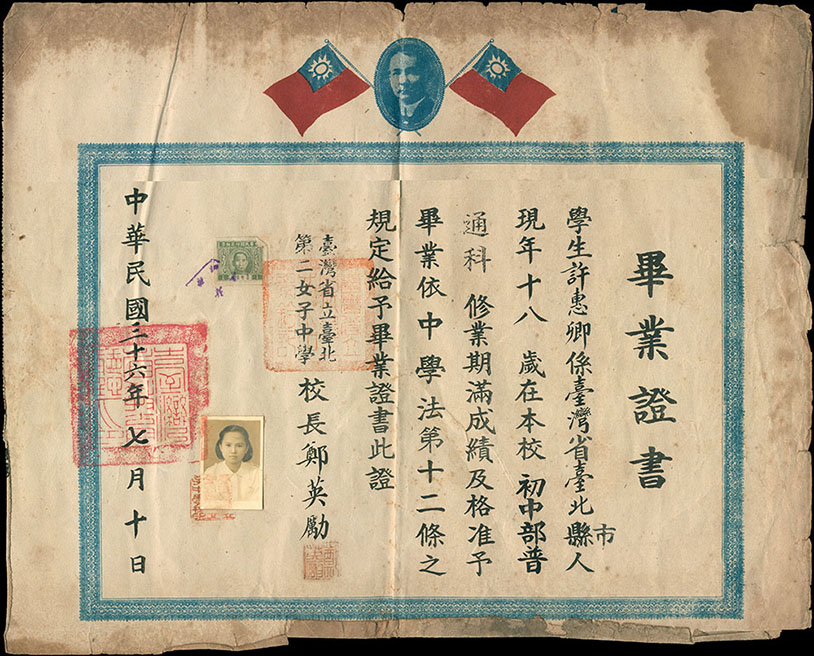 畢業證書
學生許惠卿係臺灣省臺北縣市人
現年十八歲在本校初中部普
通科修業期滿成績及格准予
畢業依中學法第十二條之
規定給予畢業證書此證
臺灣省立臺北
第二女子中學
校長鄭英勵
中華民國三十六年七月十日